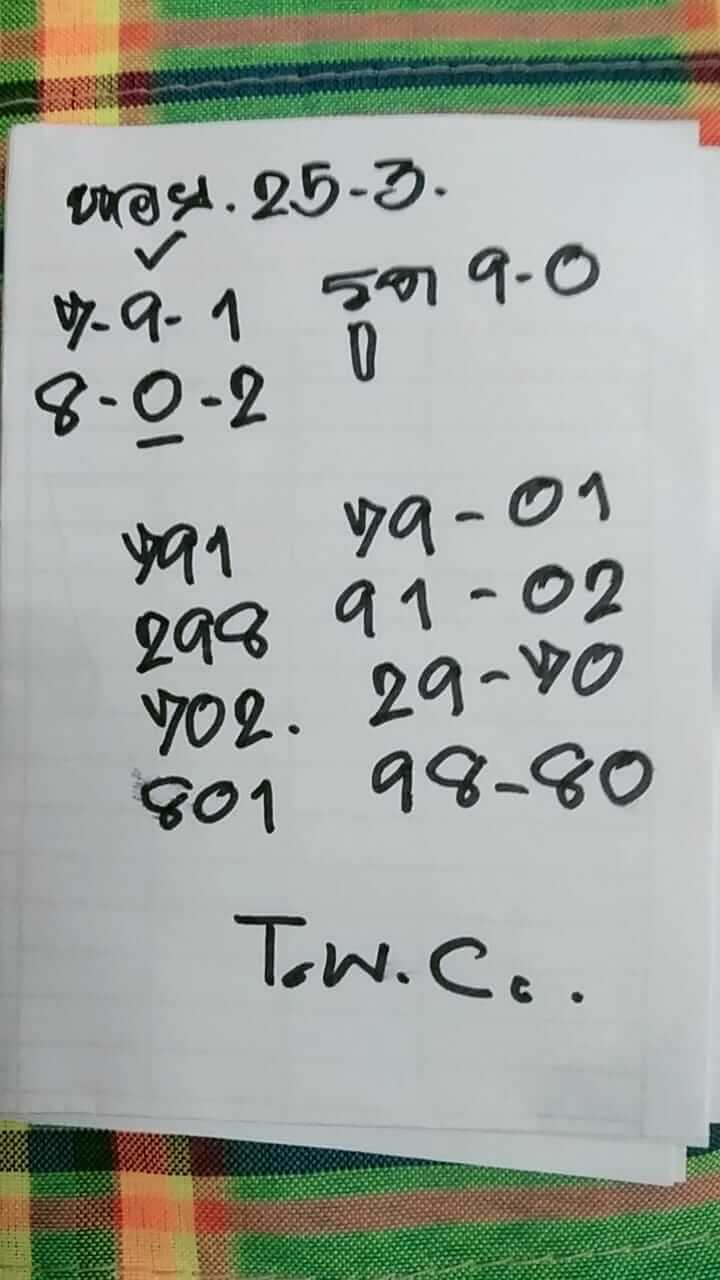 25-3.
✓
7-9-1 9-0
8-0-2
791 79-01
298 91-02
702. 29-70
801 98-80
T.W.C..